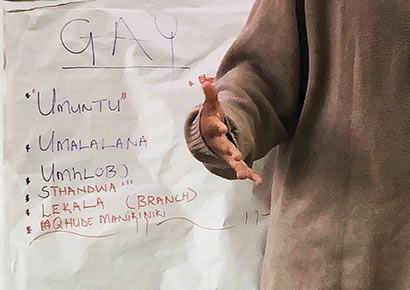 GAY
"UMUNTU"
UMALALANA
UMHLOBO
STHANDWA!!!
LEKALA (BRANCH)
QHUDE MANIKINIKI